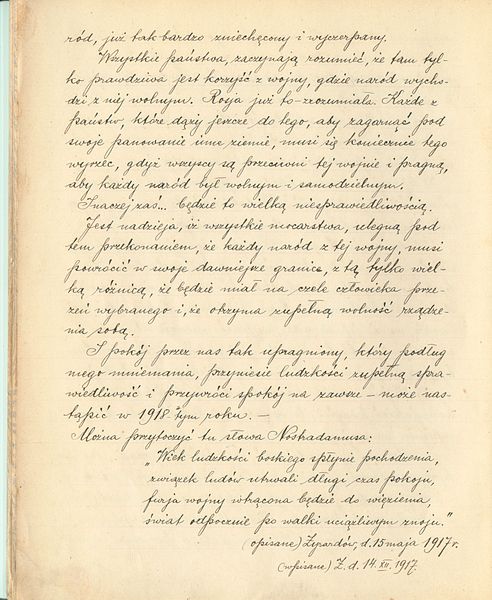 ród, już tak bardzo zniechęcony i wyczerpany.
Wszystkie państwa, zaczynają rozumieć, że tam tyl-
ko prawdziwa jest korzyść z wojny, gdzie naród wycho-
dzi z niej wolnym. Rosja już to zrozumiała. Każde z
państw, które dąży jeszcze do tego, aby zagarnąć pod
swoje panowanie inne ziemie, musi się koniecznie tego
wyrzec, gdyż wszyscy są przeciwni tej wojnie i pragną,
aby każdy naród był wolnym i samodzielnym.
Inaczej zaś... będzie to wielką niesprawiedliwością.
Jest nadzieja, iż wszystkie mocarstwa, ulegną pod
tem przekonaniem, że każdy naród z tej wojny, musi
powrócić w swoje dawniejsze granice, z tą tylko wiel-
ką różnicą, że będzie miał na czele człowieka prze-
zeń wybranego i, że otrzyma zupełną wolność rządze-
nia sobą.
I pokój przez nas tak upragniony, który podług
mego mniemania, przyniesie ludzkości zupełną spra-
wiedliwość i przywróci spokój na zawsze – może nas-
tąpić w 1918-tym roku. –
Można przytoczyć tu słowa Nostradamusa:
„Wiek ludzkości boskiego spłynie pochodzenia,
związek ludów utrwali długi czas pokoju,
furja wojny wtrącona będzie do więzienia,
świat odpocznie po walki uciążliwym znoju."
(opisane) Żyrardów, d. 15 maja 1917 r.
(wpisane) Ż. d. 14.XII.1917.